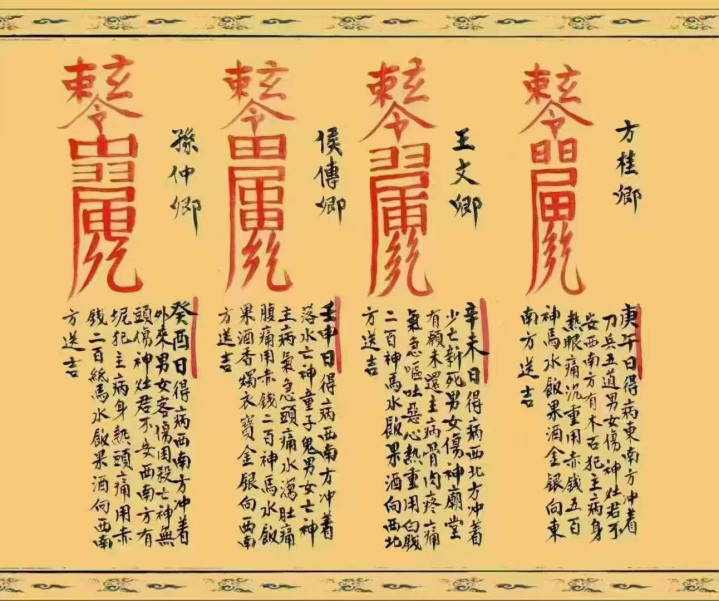 方桂卿
庚午日得病東南方冲着
刀兵五道男女傷神灶君不
安西南方有木石犯主病身
熱眼痛沉重用赤錢五百
神馬水飯果酒金銀向東
南方送吉
王文卿
辛未日得病西北方冲着
少亡對死男女傷神廟堂
有願未還主病骨肉疼痛
氣急嘔吐惡心熱重用白錢
二百神馬水飯果酒向西北
方送吉
侯傳卿
壬申日得病西南方冲着
落水亡神童子鬼男女亡神
主病氣急頭痛水瀉肚痛
腹痛用赤錢二百神馬水飯
果酒香燭衣寶金銀向西南
方送吉
孫仲卿
癸酉日得病西南方冲着
外來男女客傷困殺亡神無
頭傷神灶君不安西南方有
坭犯主病身熱頭痛用赤
錢二百紙馬水飯果酒向西南
方送吉